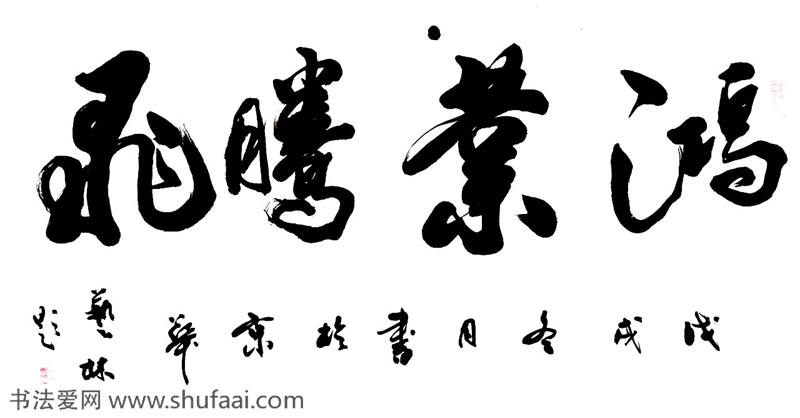 鸿業騰飛
戊戌冬月書於京華
藝林
題
书法爱网 www.shufaai.com